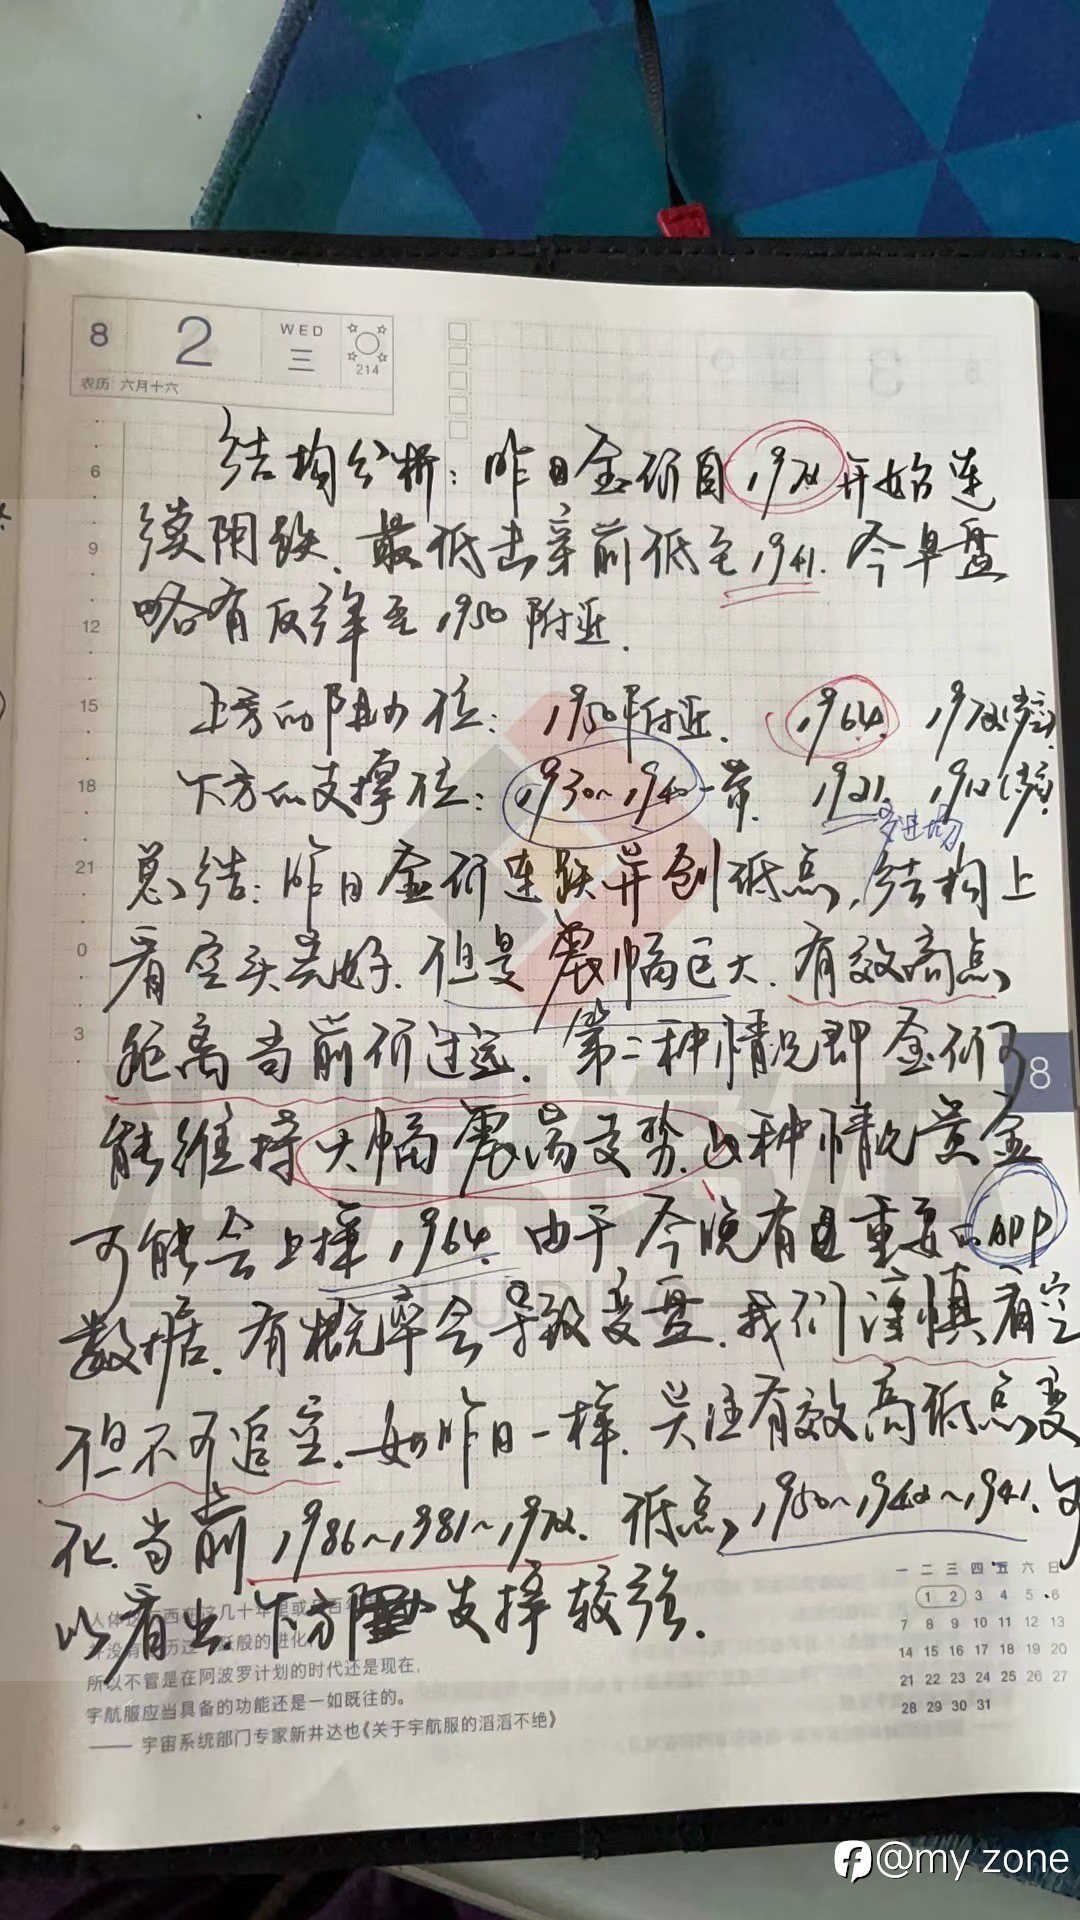 8 2 WED 三 214
农历 六月十六
结构分析：昨日金价自1972开始连
续阴跌、最低击穿前低至1941. 今早盘
略有反弹至1950附近.
上方的阻力位：1950附近. 1964. 1972(空)
下方的支撑位：1930~1940一带. 1921. 1912(多)
多进场
总结：昨日金价连跌并创低点,结构上
看空头完好. 但是震幅巨大. 有效高点
距离当前价过远. 第二种情况即金价可
能维持大幅震荡走势.此种情况黄金
可能会上探1964. 由于今晚有重要的ADP
数据. 有概率会导致变盘. 我们谨慎看空
但不可追空. 如昨日一样. 关注有效高低点变
化. 当前1986~1981~1972. 低点1950~1942~1941.可
上
以看出. 下方支撑较强.
所以不管是在阿波罗计划的时代还是现在,
宇航服应当具备的功能还是一如既往的。
—— 宇宙系统部门专家新井达也《关于宇航服的滔滔不绝》
6
9
12
15
18
21
0
3
8
一 二 三 四 五 六 日
1 2 3 4 5 6
7 8 9 10 11 12 13
14 15 16 17 18 19 20
21 22 23 24 25 26 27
28 29 30 31
@my zone